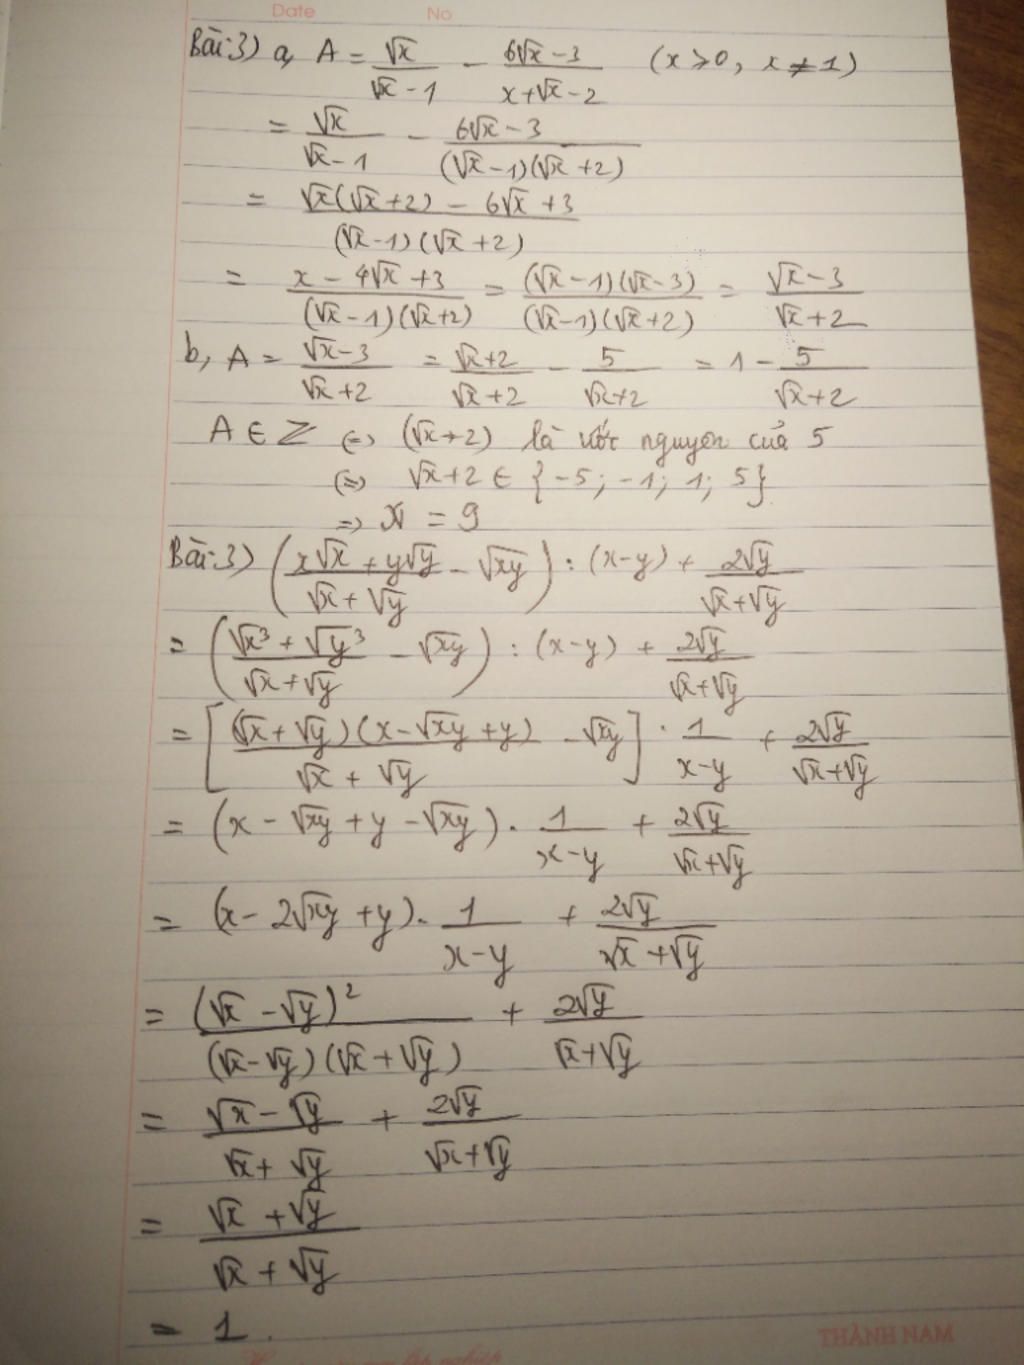 Date No
Bài 3) a, A = √x/(√x - 1) - (6√x - 3)/(x + √x - 2) (x ≥ 0, x ≠ 1)
= √x/(√x - 1) - (6√x - 3)/((√x - 1)(√x + 2))
= (√x(√x + 2) - 6√x + 3)/((√x - 1)(√x + 2))
= (x - 4√x + 3)/((√x - 1)(√x + 2)) = ((√x - 1)(√x - 3))/((√x - 1)(√x + 2)) = (√x - 3)/(√x + 2)
b, A = (√x - 3)/(√x + 2) = (√x + 2)/(√x + 2) - 5/(√x + 2) = 1 - 5/(√x + 2)
A ∈ Z ⇔ (√x + 2) là ước nguyên của 5
⇔ √x + 2 ∈ {-5; -1; 1; 5}
⇒ x = 9
Bài 3) ((x√x + y√y)/(√x + √y) - √xy) : (x - y) + 2√y/(√x + √y)
= ((√x³ + √y³)/(√x + √y) - √xy) : (x - y) + 2√y/(√x + √y)
= [((√x + √y)(x - √xy + y))/(√x + √y) - √xy] · 1/(x - y) + 2√y/(√x + √y)
= (x - √xy + y - √xy) · 1/(x - y) + 2√y/(√x + √y)
= (x - 2√xy + y) · 1/(x - y) + 2√y/(√x + √y)
= (√x - √y)²/((√x - √y)(√x + √y)) + 2√y/(√x + √y)
= (√x - √y)/(√x + √y) + 2√y/(√x + √y)
= (√x + √y)/(√x + √y)
= 1.
THÀNH NAM